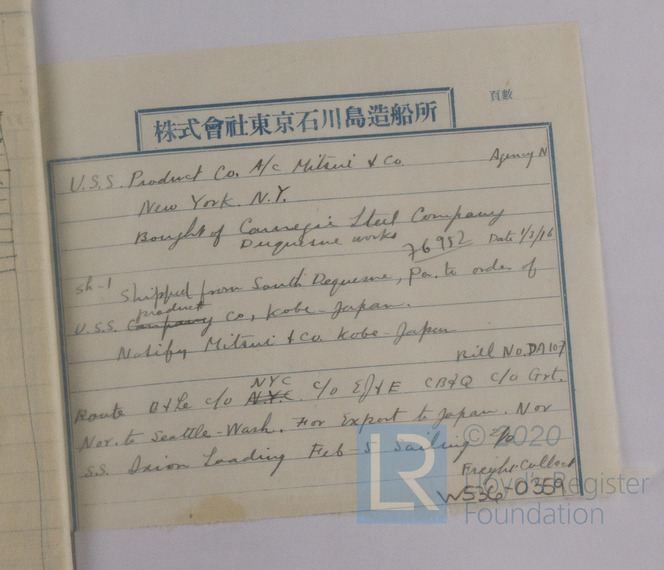 頁數
株式會社東京石川島造船所
U.S.S. Product Co. A/c Mitsui & Co. Agency N
New York. N.Y.
Bought of Carnegie Steel Company
Duquesne works 76952 Date 1/3/16
sh-1 Shipped from South Duquesne, Pa. to order of
product
U.S.S. Company Co, Kobe-Japan.
Notify Mitsui & Co. Kobe-Japan
Bill No. DA107
NYC
Route c/o N.Y.C c/o EJ&E CB&Q c/o Grt.
Nor. to Seattle-Wash. For Export to Japan. Nor
S.S. Ixion Loading Feb-5 Sailing
Freight Collect
W536-0359
LR
© 2020
Lloyd's Register
Foundation